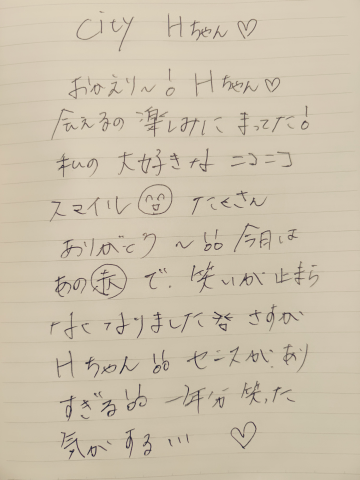 City Hちゃん♡
おかえり〜! Hちゃん♡
会えるの楽しみにまってた!
私の大好きなニコニコ
スマイル たくさん
ありがとう〜!! 今日は
あの赤で、笑いが止まら
なくなりました さすが
Hちゃん!! センスがあり
すぎる!! 一年分笑った
気がする... ♡